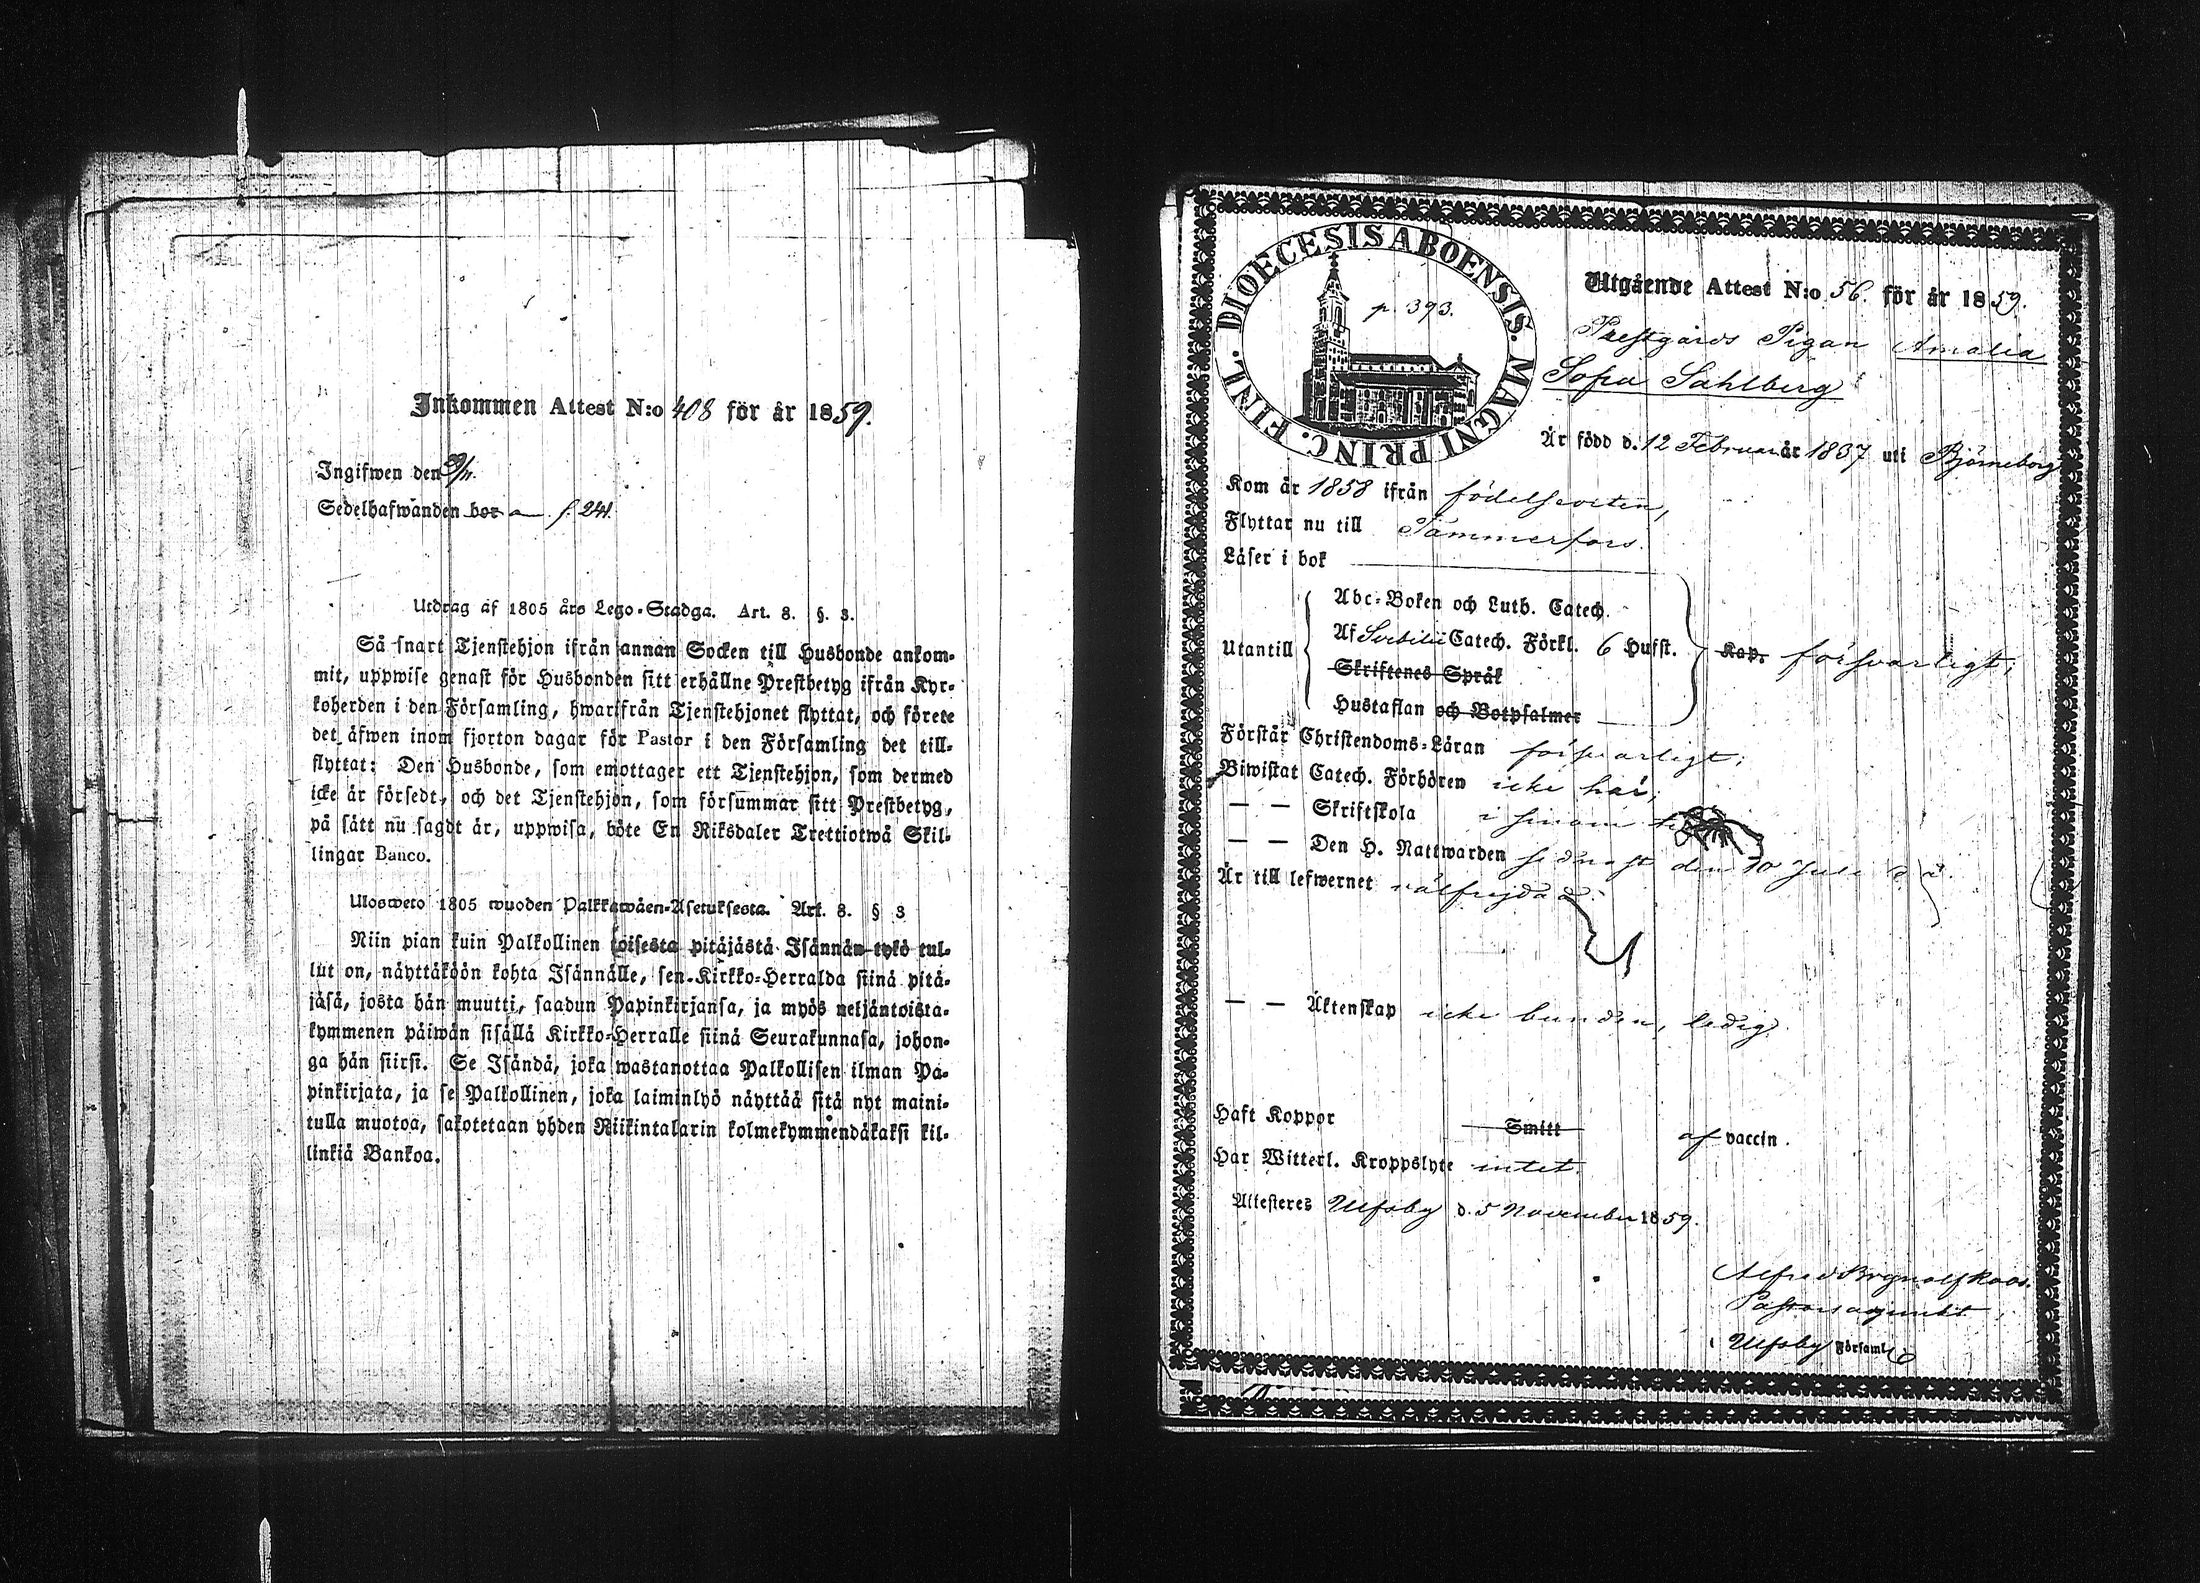 Inkommen Attest N:o 408 för år 1859.
Ingifwen den 9/11.
Sedelhafwanden bor f. 241.
Utdrag af 1805 års Lego-Stadga. Art. 8. §. 3.
Så snart Tjenstehjon ifrån annan Socken till Husbonde ankom-
mit, uppwise genast för Husbonden sitt erhållne Prestbetyg ifrån Kyr-
koherden i den Församling, hwarifrån Tjenstehjonet flyttat, och förete
det äfwen inom fjorton dagar för Pastor i den Församling det till-
flyttat: Den Husbonde, som emottager ett Tjenstehjon, som dermed
icke är försedt, och det Tjenstehjon, som försummar sitt Prestbetyg,
på sätt nu sagdt är, uppwisa, böte En Riksdaler Trettiotwå Skil-
lingar Banco.
Ulosweto 1805 wuoden Palkkawäen-Asetuksesta. Art. 8. § 3
Niin pian kuin Palkollinen toisesta pitäjästä Isännän tykö tul-
lut on, näyttäköön kohta Isännälle, sen Kirkko-Herralda siinä pitä-
jäsä, josta hän muutti, saadun Papinkirjansa, ja myös neljäntoista-
kymmenen päiwän sisällä Kirkko-Herralle siinä Seurakunnasa, johon-
ga hän siirsi. Se Isändä, joka wastanottaa Palkollisen ilman Pa-
pinkirjata, ja se Palkollinen, joka laiminlyö näyttää sitä nyt maini-
tulla muotoa, sakotetaan yhden Riikintalarin kolmekymmendäkaksi kil-
linkiä Bankoa.
DIOECESIS ABOENSIS. MAGNI PRINC. FINL.
p. 393.
Utgående Attest N:o 56. för år 1859.
Prestgårds Pigan Amalia
Sofia Sahlberg
Är född d. 12 Februari år 1837 uti Björneborg
Kom år 1858 ifrån födelseorten,
Flyttar nu till Tammerfors.
Läser i bok
Abc-Boken och Luth. Catech.
Utantill Af Svebilii Catech. Förkl. 6 Hufst. Kap. försvarligt;
Skriftenes Språk
Hustaflan och Botpsalmer
Förstår Christendoms-Läran försvarligt;
Biwistat Catech. Förhören icke här;
— — Skriftskola i sinom
— — Den H. Nattwarden sednast den 10 Juli
Är till lefwernet välfrejdad.
— — Äktenskap icke bunden, ledig.
Haft Koppor Smitt af vaccin.
Har Witterl. Kroppslyte intet.
Attesteres Ulfsby d. 5 November 1859.
Pastorsadjunkt
i Ulfsby Församl.